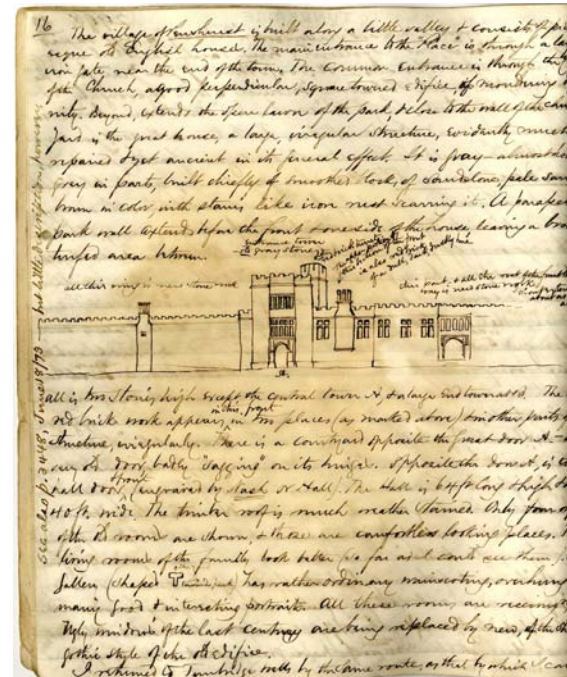 16
The village of Penshurst is built along a little valley & consists of
esque old English houses. The main entrance to the Place is through a
iron gate, near the end of the town. The common entrance is through the
of the Church, a good perpendicular, square towered edifice, of
nity. Beyond, extends the open lawn of the park, & close to the wall of the
yard is the great house, a large, irregular structure, evidently much
repaired & yet ancient in its general effect. It is gray—almost
gray in parts, built chiefly of smoothed blocks of sandstone, pale
brown in color, with stains like iron rust scarring it. A
park wall extends before the front & one side of the house, leaving a
turfed area between.
entrance tower
is gray stone
is also red brick
of a dull, dusky hue
all this wing is new stone work
this part, & all the rest of the front
way is new stone work
all is two stories high except the central tower A, & a large end tower at B. The
in this front
red brick work appears, in two places (as marked above) & in other parts of
structure, irregularly. There is a courtyard opposite the great door A—
very old door, badly "sagging" on its hinges. Opposite the door A, is
front
hall door, (engraved by Nash or Hall). The Hall is 64 ft long & high &
40 ft. wide. The timber roof is much weather stained. Only four
of the old rooms are shown, & those are comfortless looking places.
living rooms of the family look better (so far as I could see them).
(shaped T has rather ordinary wainscoting,
many good & interesting portraits. All these rooms are
Ugly windows of the last century are being replaced by new, of the
gothic style of the old edifice.
I returned to Tunbridge Wells by the same route, as that by which I
See also p. 3448, June 18/73 — but little description however